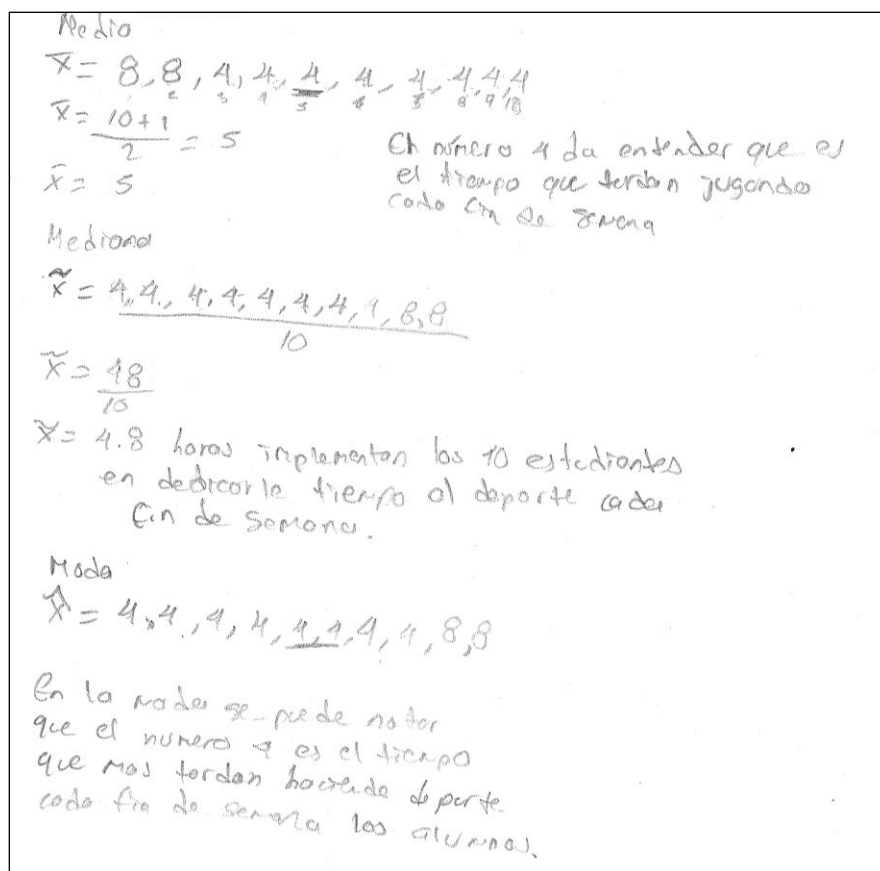 Medio
x̄ = 8, 8, 4, 4, 4, 4, 4, 4, 4, 4
1 2 3 4 5 6 7 8 9 10
x̄ = 10+1 / 2 = 5
x̄ = 5
En número 4 da entender que es
el tiempo que tardan jugando
cada fin de semana
Mediana
x̃ = 4, 4, 4, 4, 4, 4, 4, 4, 8, 8 / 10
x̃ = 48 / 10
x̃ = 4.8 horas implementan los 10 estudiantes
en dedicarle tiempo al deporte cada
fin de semana.
Moda
x̂ = 4, 4, 4, 4, 4, 4, 4, 4, 8, 8
En la moda se puede notar
que el numero 4 es el tiempo
que mas tardan haciendo deporte
cada fin de semana los alumnos.